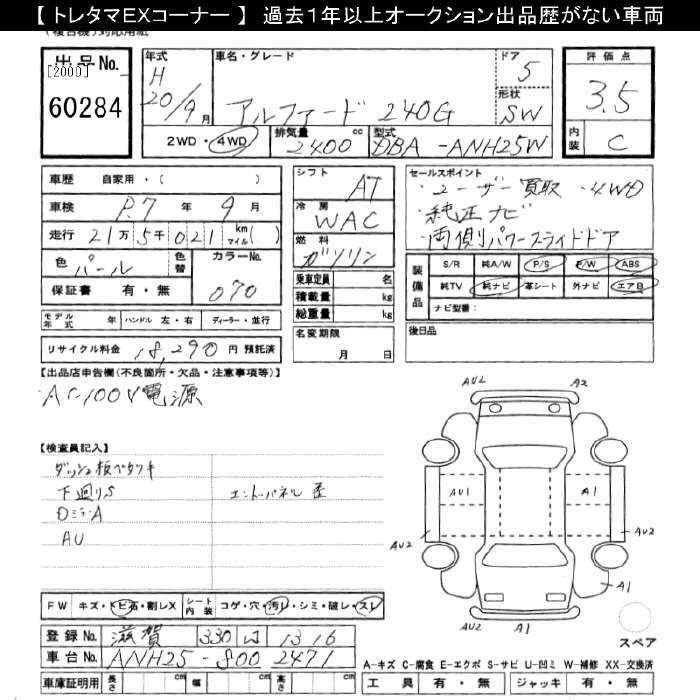 【 トレタマEXコーナー 】 過去1年以上オークション出品歴がない車両
(複合機)対応用紙
出品No.
[2000]
60284
年式
H 20/9月
車名・グレード
アルファード 240G
ドア
5
形状
SW
評価点
3.5
内装
C
2WD・4WD
排気量
2400 cc
型式
DBA-ANH25W
車歴 自家用・( )
車検 R.7 年 9 月
走行 21万5千021 km マイル( )
色 パール
色替
カラーNo.
070
保証書 有・無
シフト
AT
冷房
WAC
燃料
ガソリン
乗車定員 名
積載量 kg
総重量 kg
名変期限
月 日
セールスポイント
・ユーザー買取 ・4WD
・純正ナビ
・両側パワースライドドア
装備品
S/R 純A/W P/S P/W ABS
純TV 純ナビ 革シート 外ナビ エアB
ナビ型番:
後日品
モデル年式 年 ハンドル 左・右 ディーラー・並行
リサイクル料金 18,290 円 預託済
【出品店申告欄(不良箇所・欠品・注意事項等)】
・AC100V電源
【検査員記入】
ダッシュ板ベタツキ
下廻りS
エンドパネル歪
DミラーA
AU
AU2
A2
AU1
A1
AU2
AU2
A1
AU2
A1
スペア
FW キズ・トビ石・割レX
シート内装 コゲ・穴・汚レ・シミ・破レ・スレ
登録No. 滋賀 330 は 1316
車台No. ANH25-800 2471
車庫証明用 長さ cm 幅 cm 高さ cm
A-キズ C-腐食 E-エクボ S-サビ U-凹ミ W-補修 XX-交換済
工具 有・無 ジャッキ 有・無